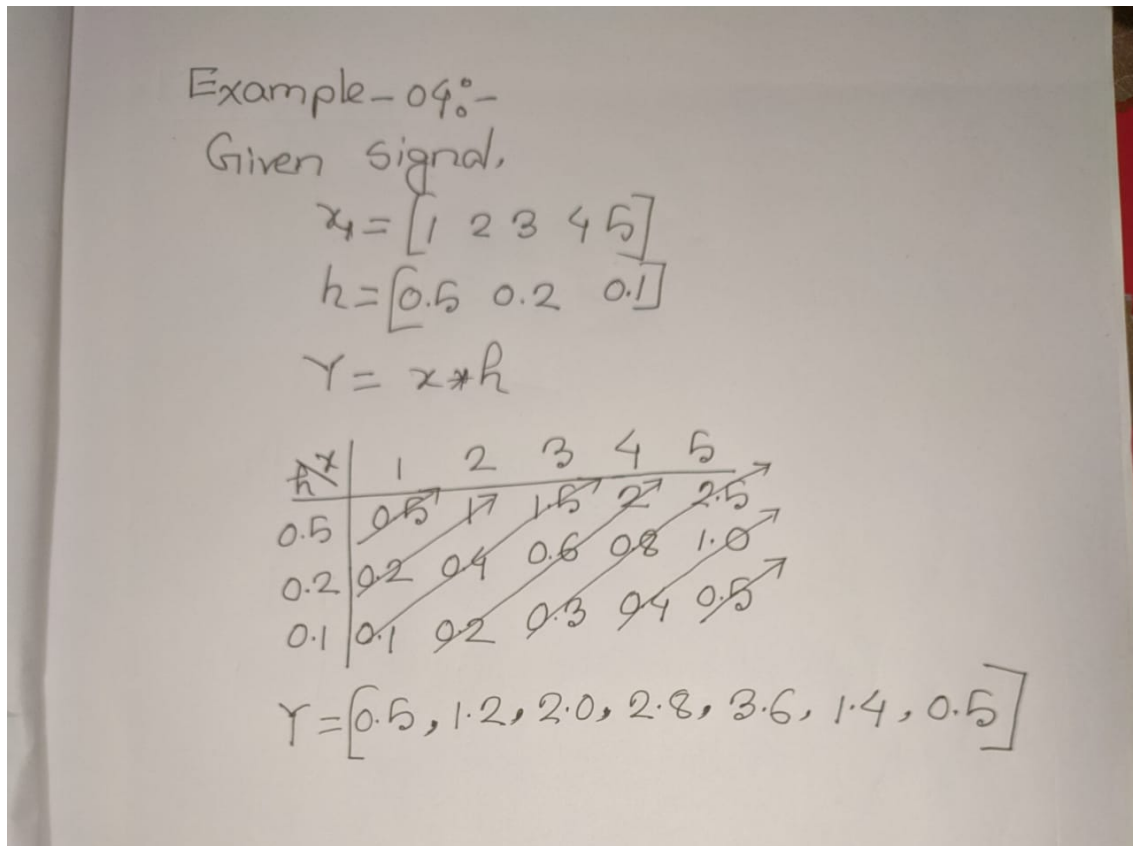 Example-04:-
Given signal,
x₁ = [1 2 3 4 5]
h = [0.5 0.2 0.1]
Y = x*h
h\x 1 2 3 4 5
0.5 0.5 1 1.5 2 2.5
0.2 0.2 0.4 0.6 0.8 1.0
0.1 0.1 0.2 0.3 0.4 0.5
Y = [0.5, 1.2, 2.0, 2.8, 3.6, 1.4, 0.5]